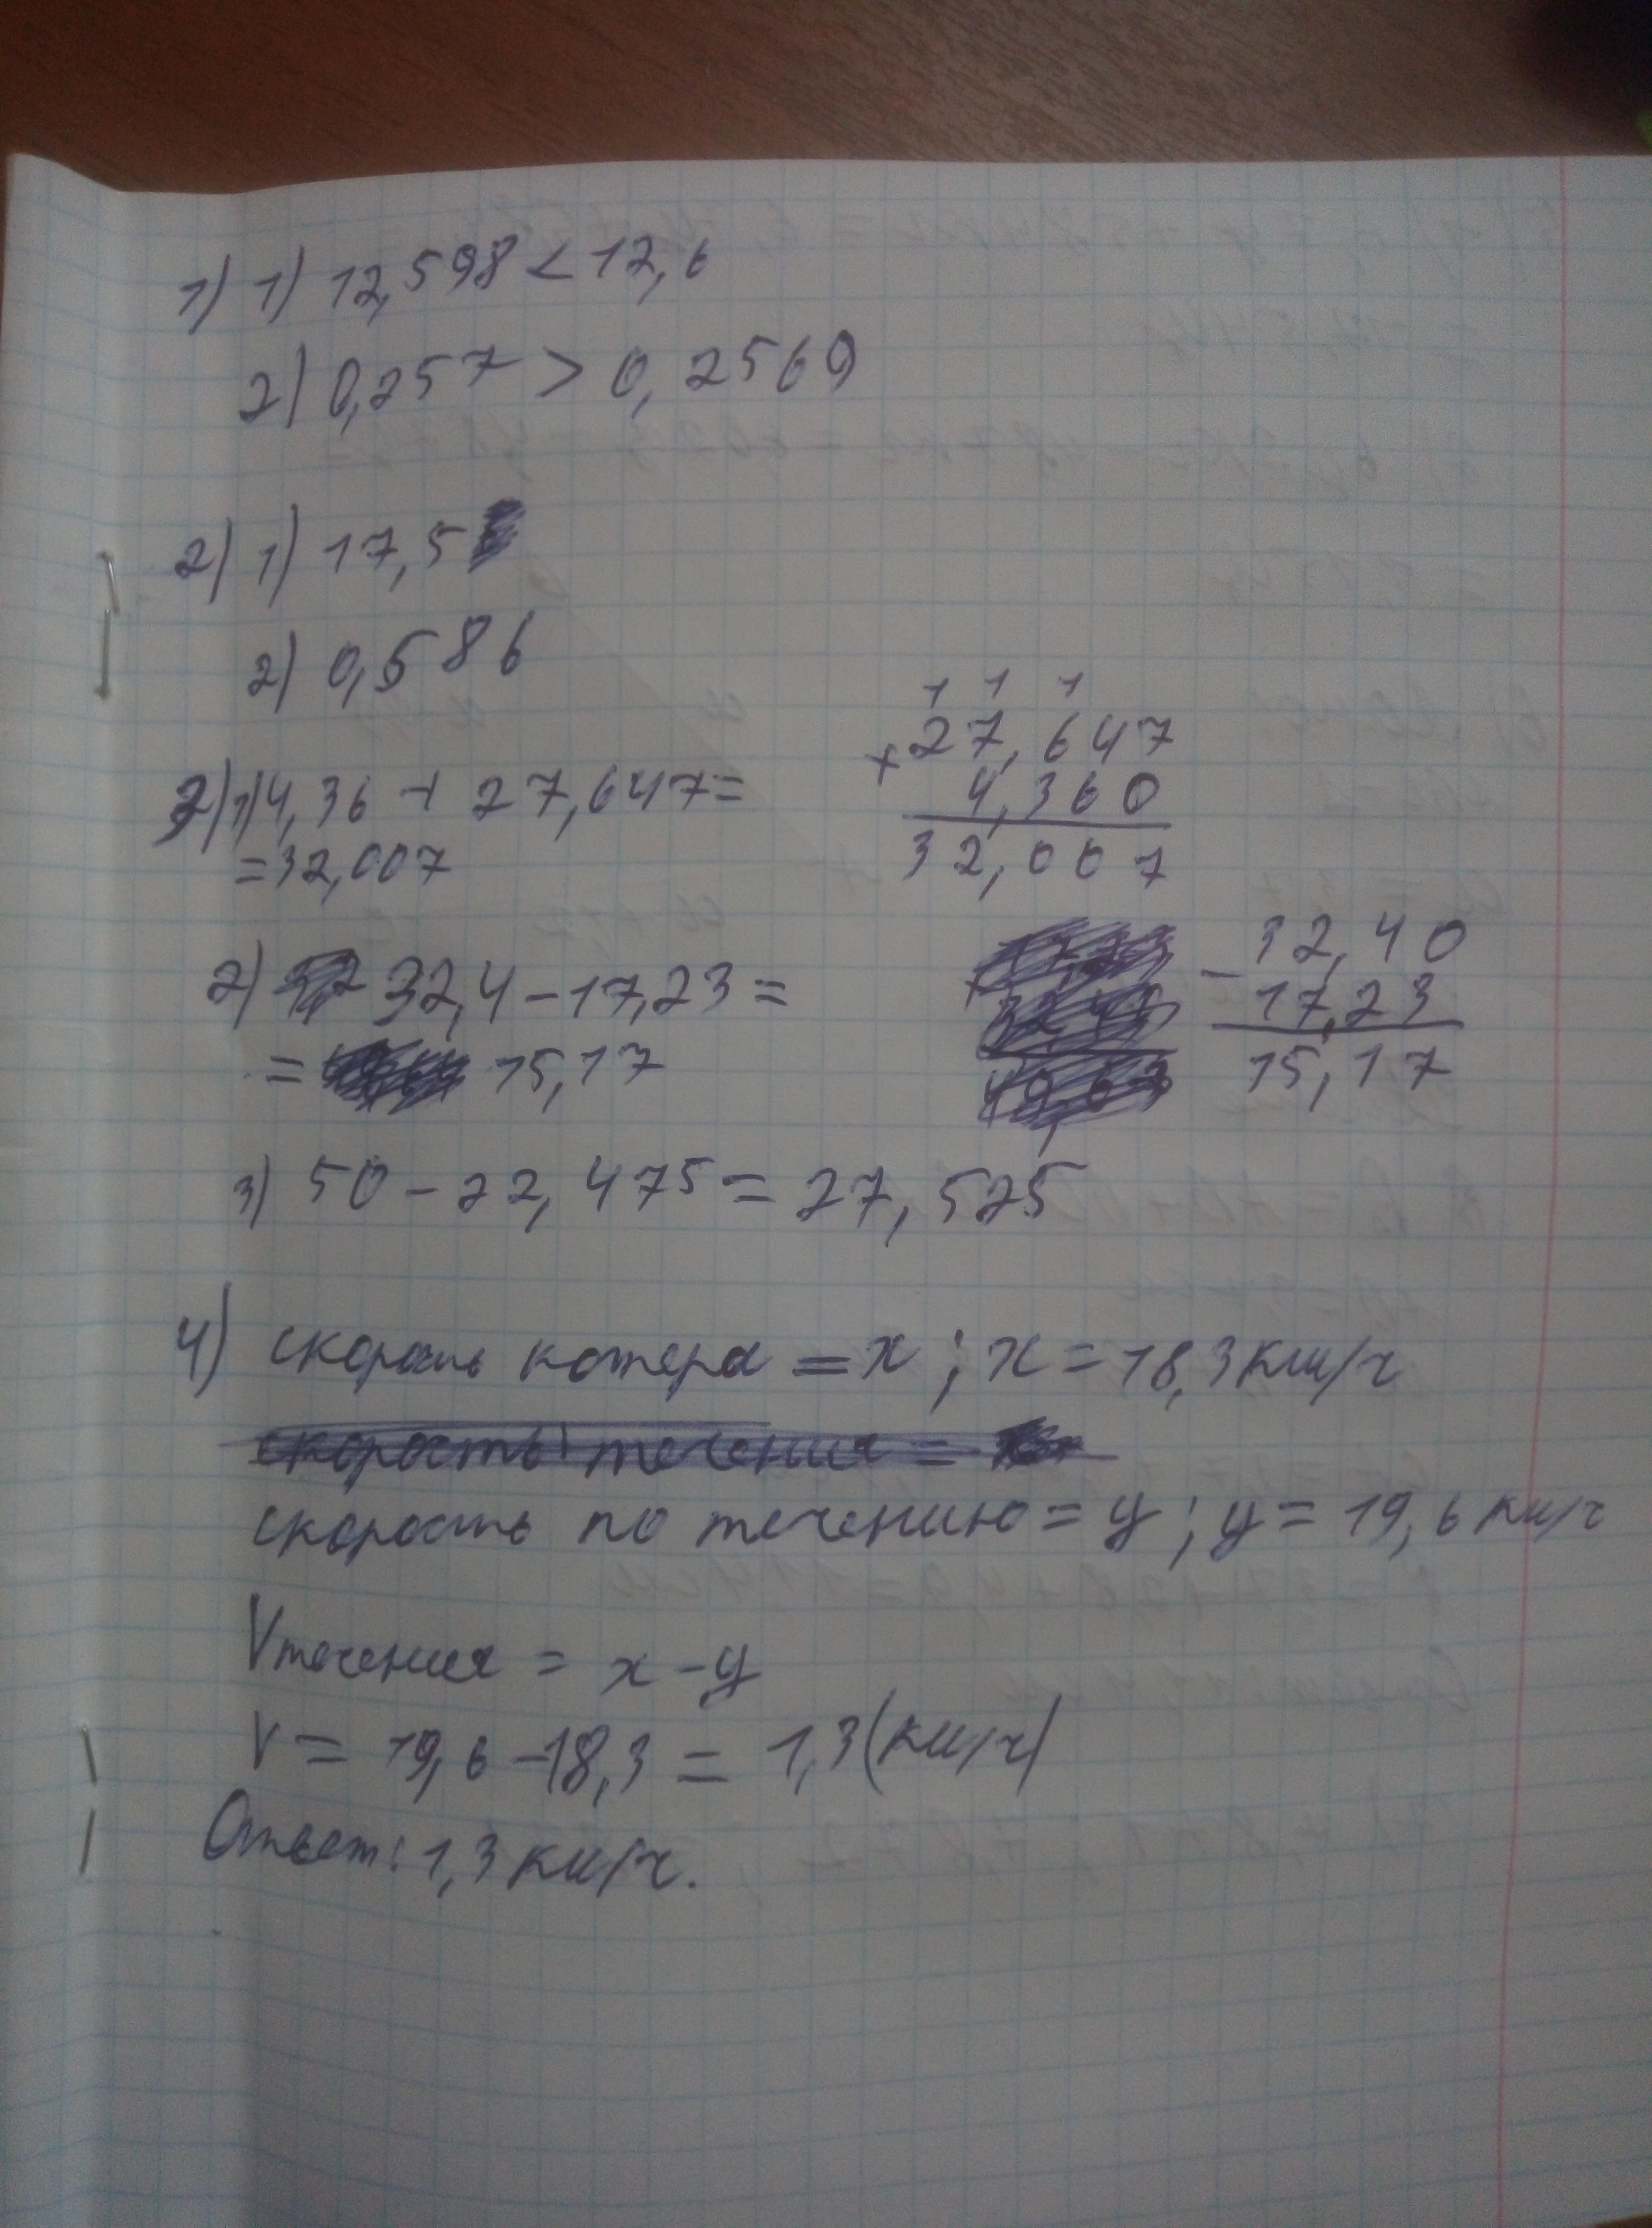 1) 1) 12,598 < 12,6
2) 0,257 > 0,2569
2) 1) 17,5
2) 0,586
3) 1) 4,36 + 27,647 =
= 32,007
1 1 1
+ 27,647
4,360
32,007
2) 32,4 - 17,23 =
= 15,17
- 32,40
17,23
15,17
3) 50 - 22,475 = 27,525
4) скорость катера = x ; x = 18,3 км/ч
скорость течения =
скорость по течению = y ; y = 19,6 км/ч
Vтечения = x - y
V = 19,6 - 18,3 = 1,3 (км/ч)
Ответ: 1,3 км/ч.